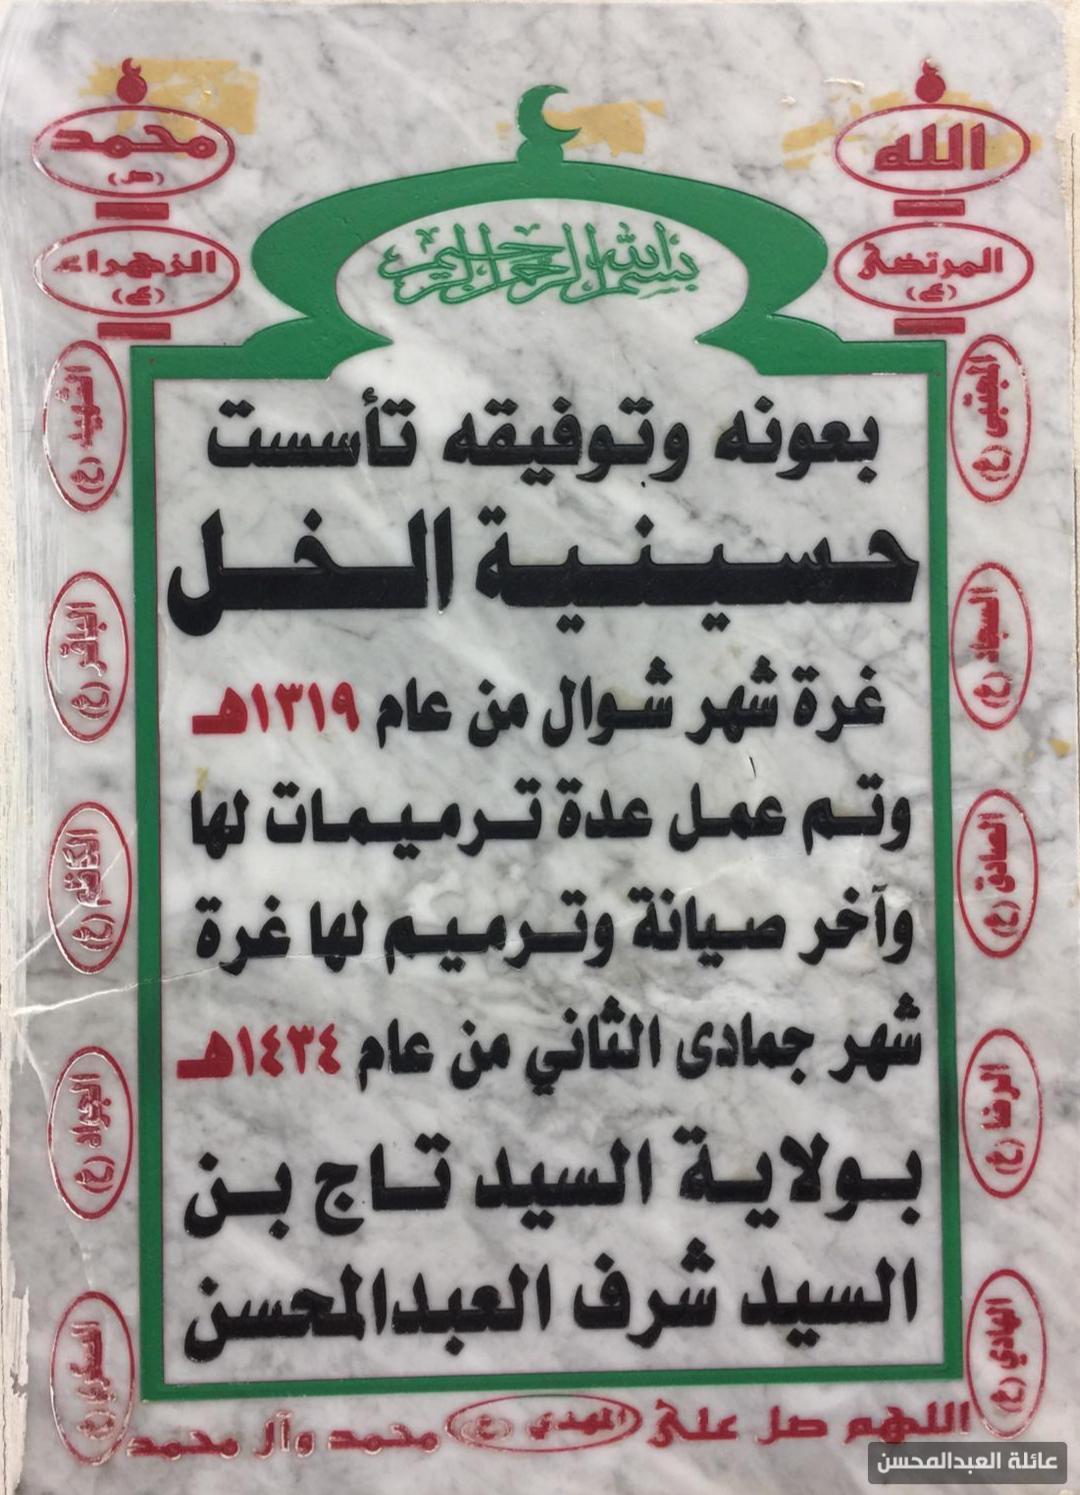 الله
محمد
(ص)
المرتضى
(ع)
الزهراء
(ع)
بسم الله الرحمن الرحيم
المجتبى (ع)
الشهيد (ع)
السجاد (ع)
الباقر (ع)
الصادق (ع)
الكاظم (ع)
الرضا (ع)
الجواد (ع)
الهادي (ع)
العسكري (ع)
بعونه وتوفيقه تأسست
حسينية الخل
غرة شهر شوال من عام ١٣١٩هـ
وتم عمل عدة ترميمات لها
وآخر صيانة وترميم لها غرة
شهر جمادى الثاني من عام ١٤٣٤هـ
بولاية السيد تاج بن
السيد شرف العبدالمحسن
اللهم صل على المهدي (ع) محمد وآل محمد
عائلة العبدالمحسن